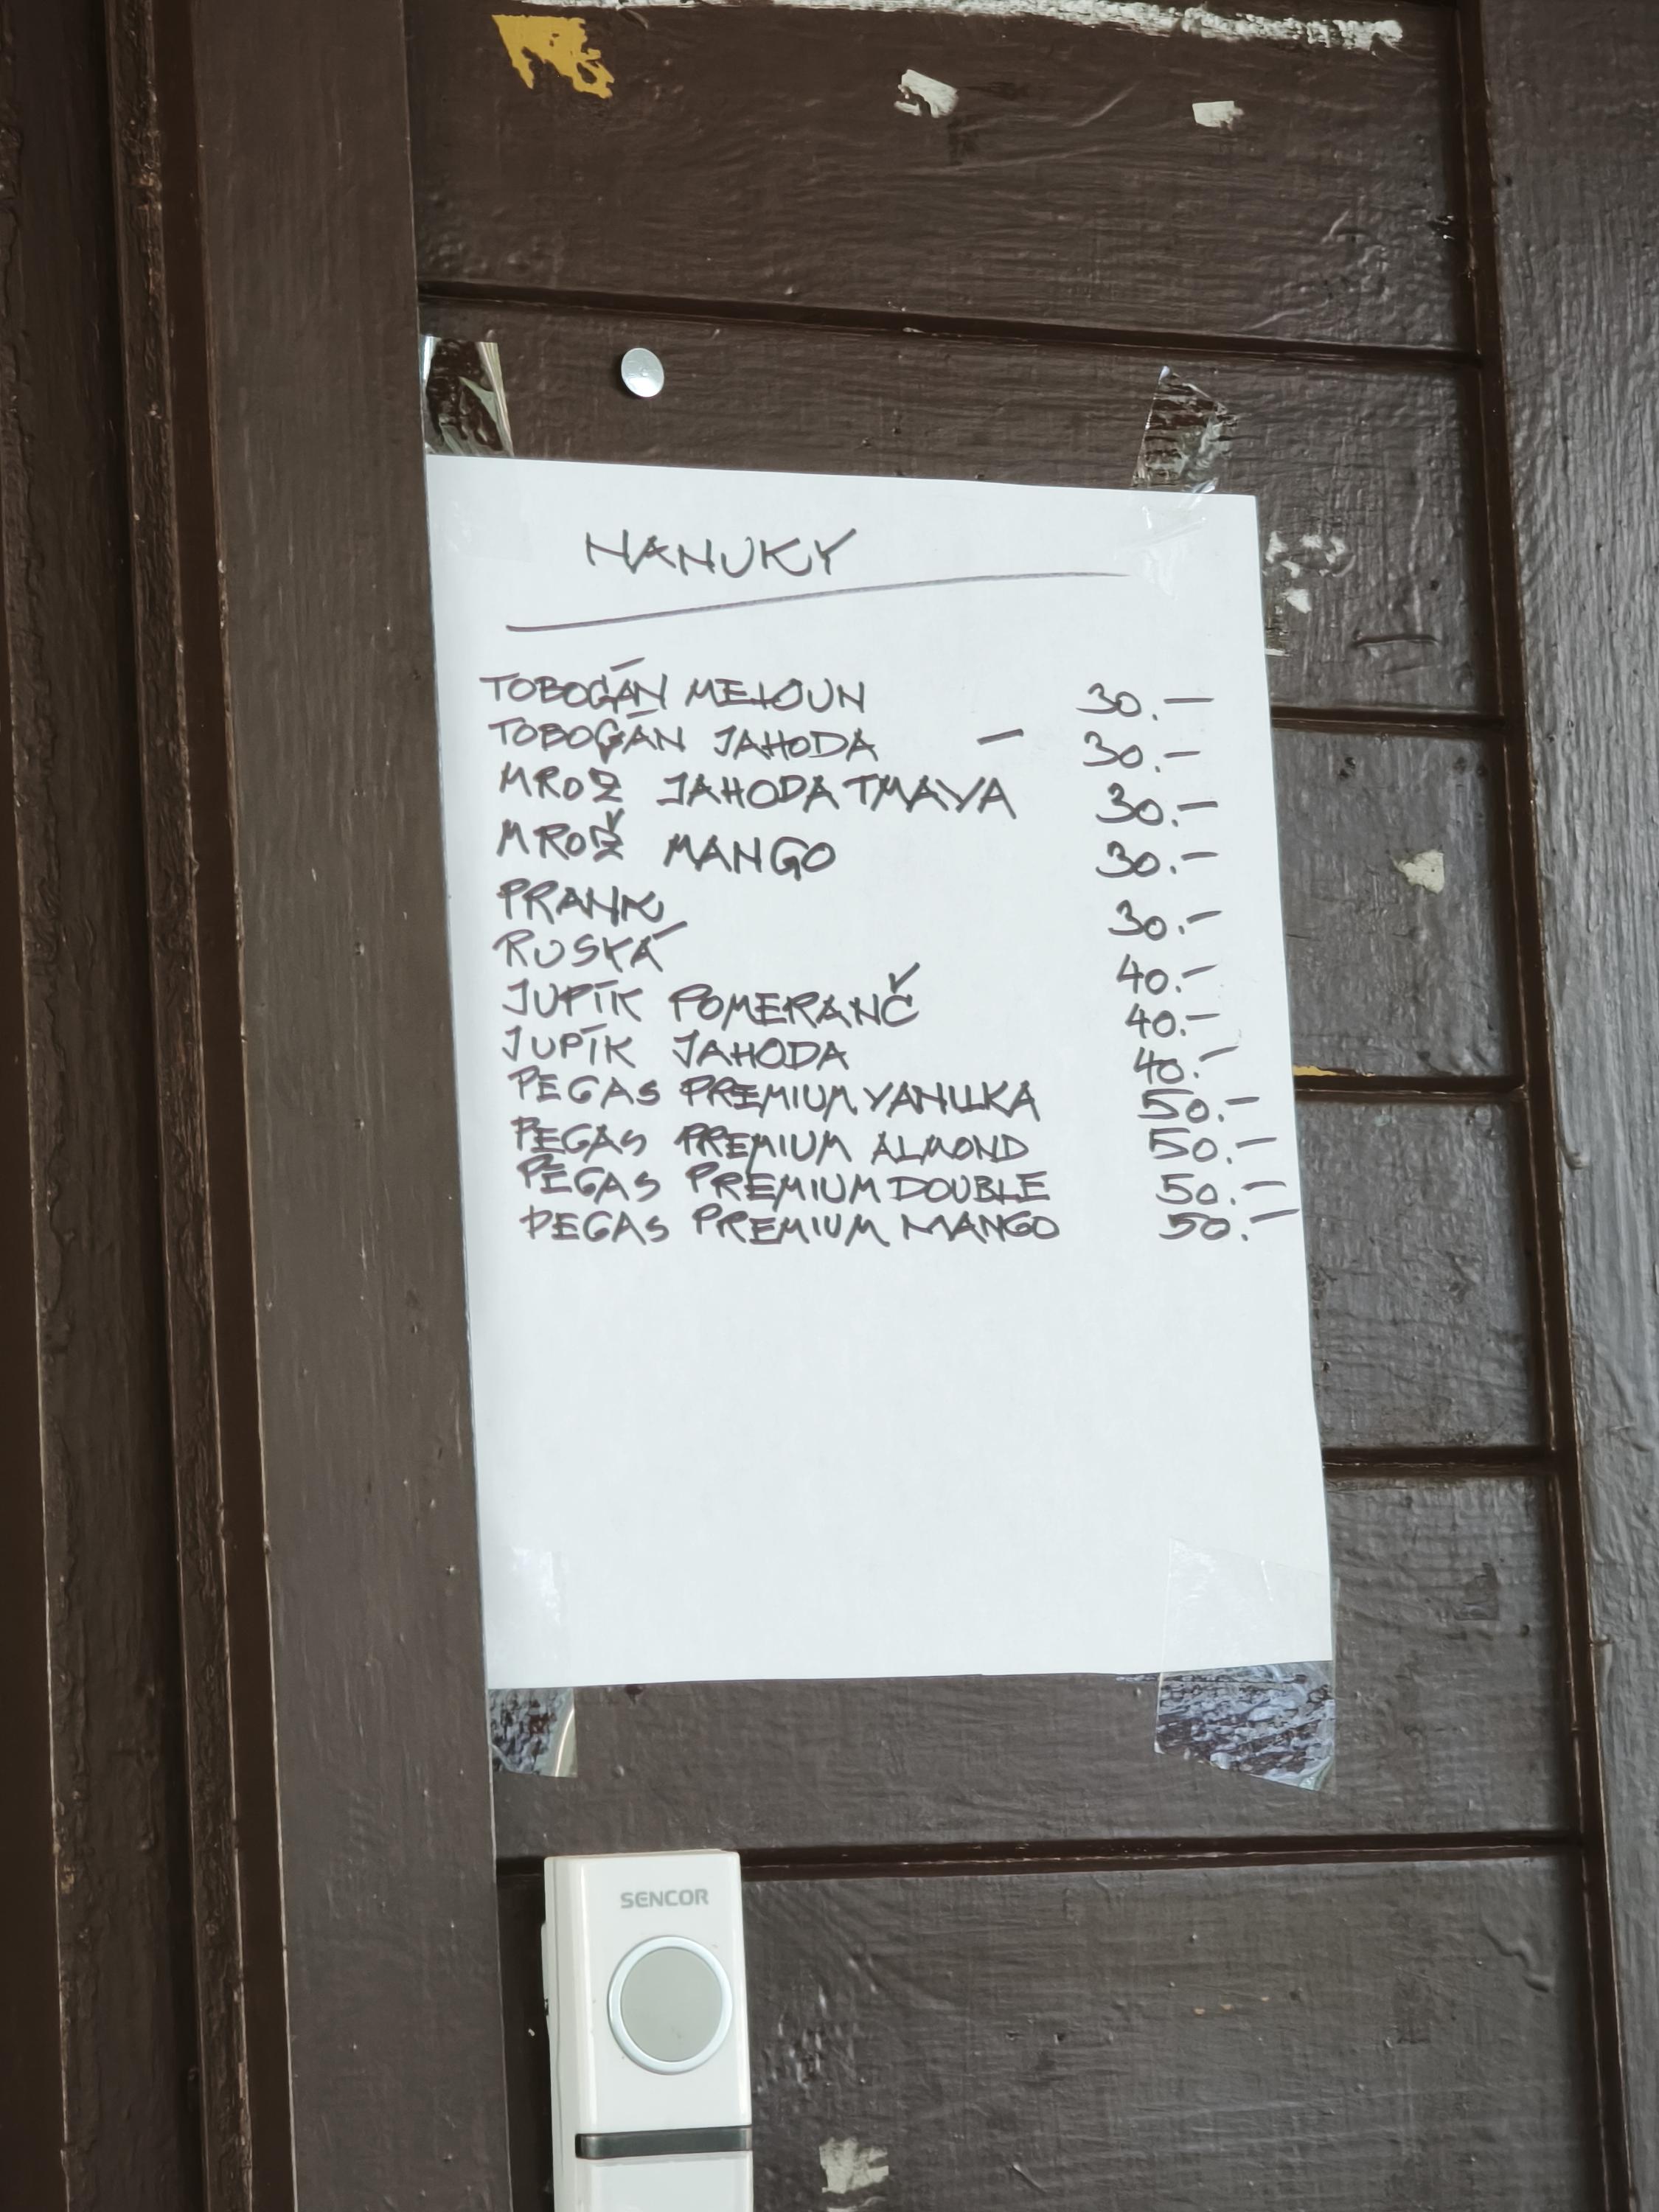 NANUKY
TOBOGÁN MELOUN 30.-
TOBOGÁN JAHODA 30.-
MROŽ JAHODA TMAVÁ 30.-
MROŽ MANGO 30.-
PRANK 30.-
RUSKÁ 40.-
JUPÍK POMERANČ 40.-
JUPÍK JAHODA 40.-
PEGAS PREMIUM VANILKA 50.-
PEGAS PREMIUM ALMOND 50.-
PEGAS PREMIUM DOUBLE 50.-
PEGAS PREMIUM MANGO 50.-
SENCOR